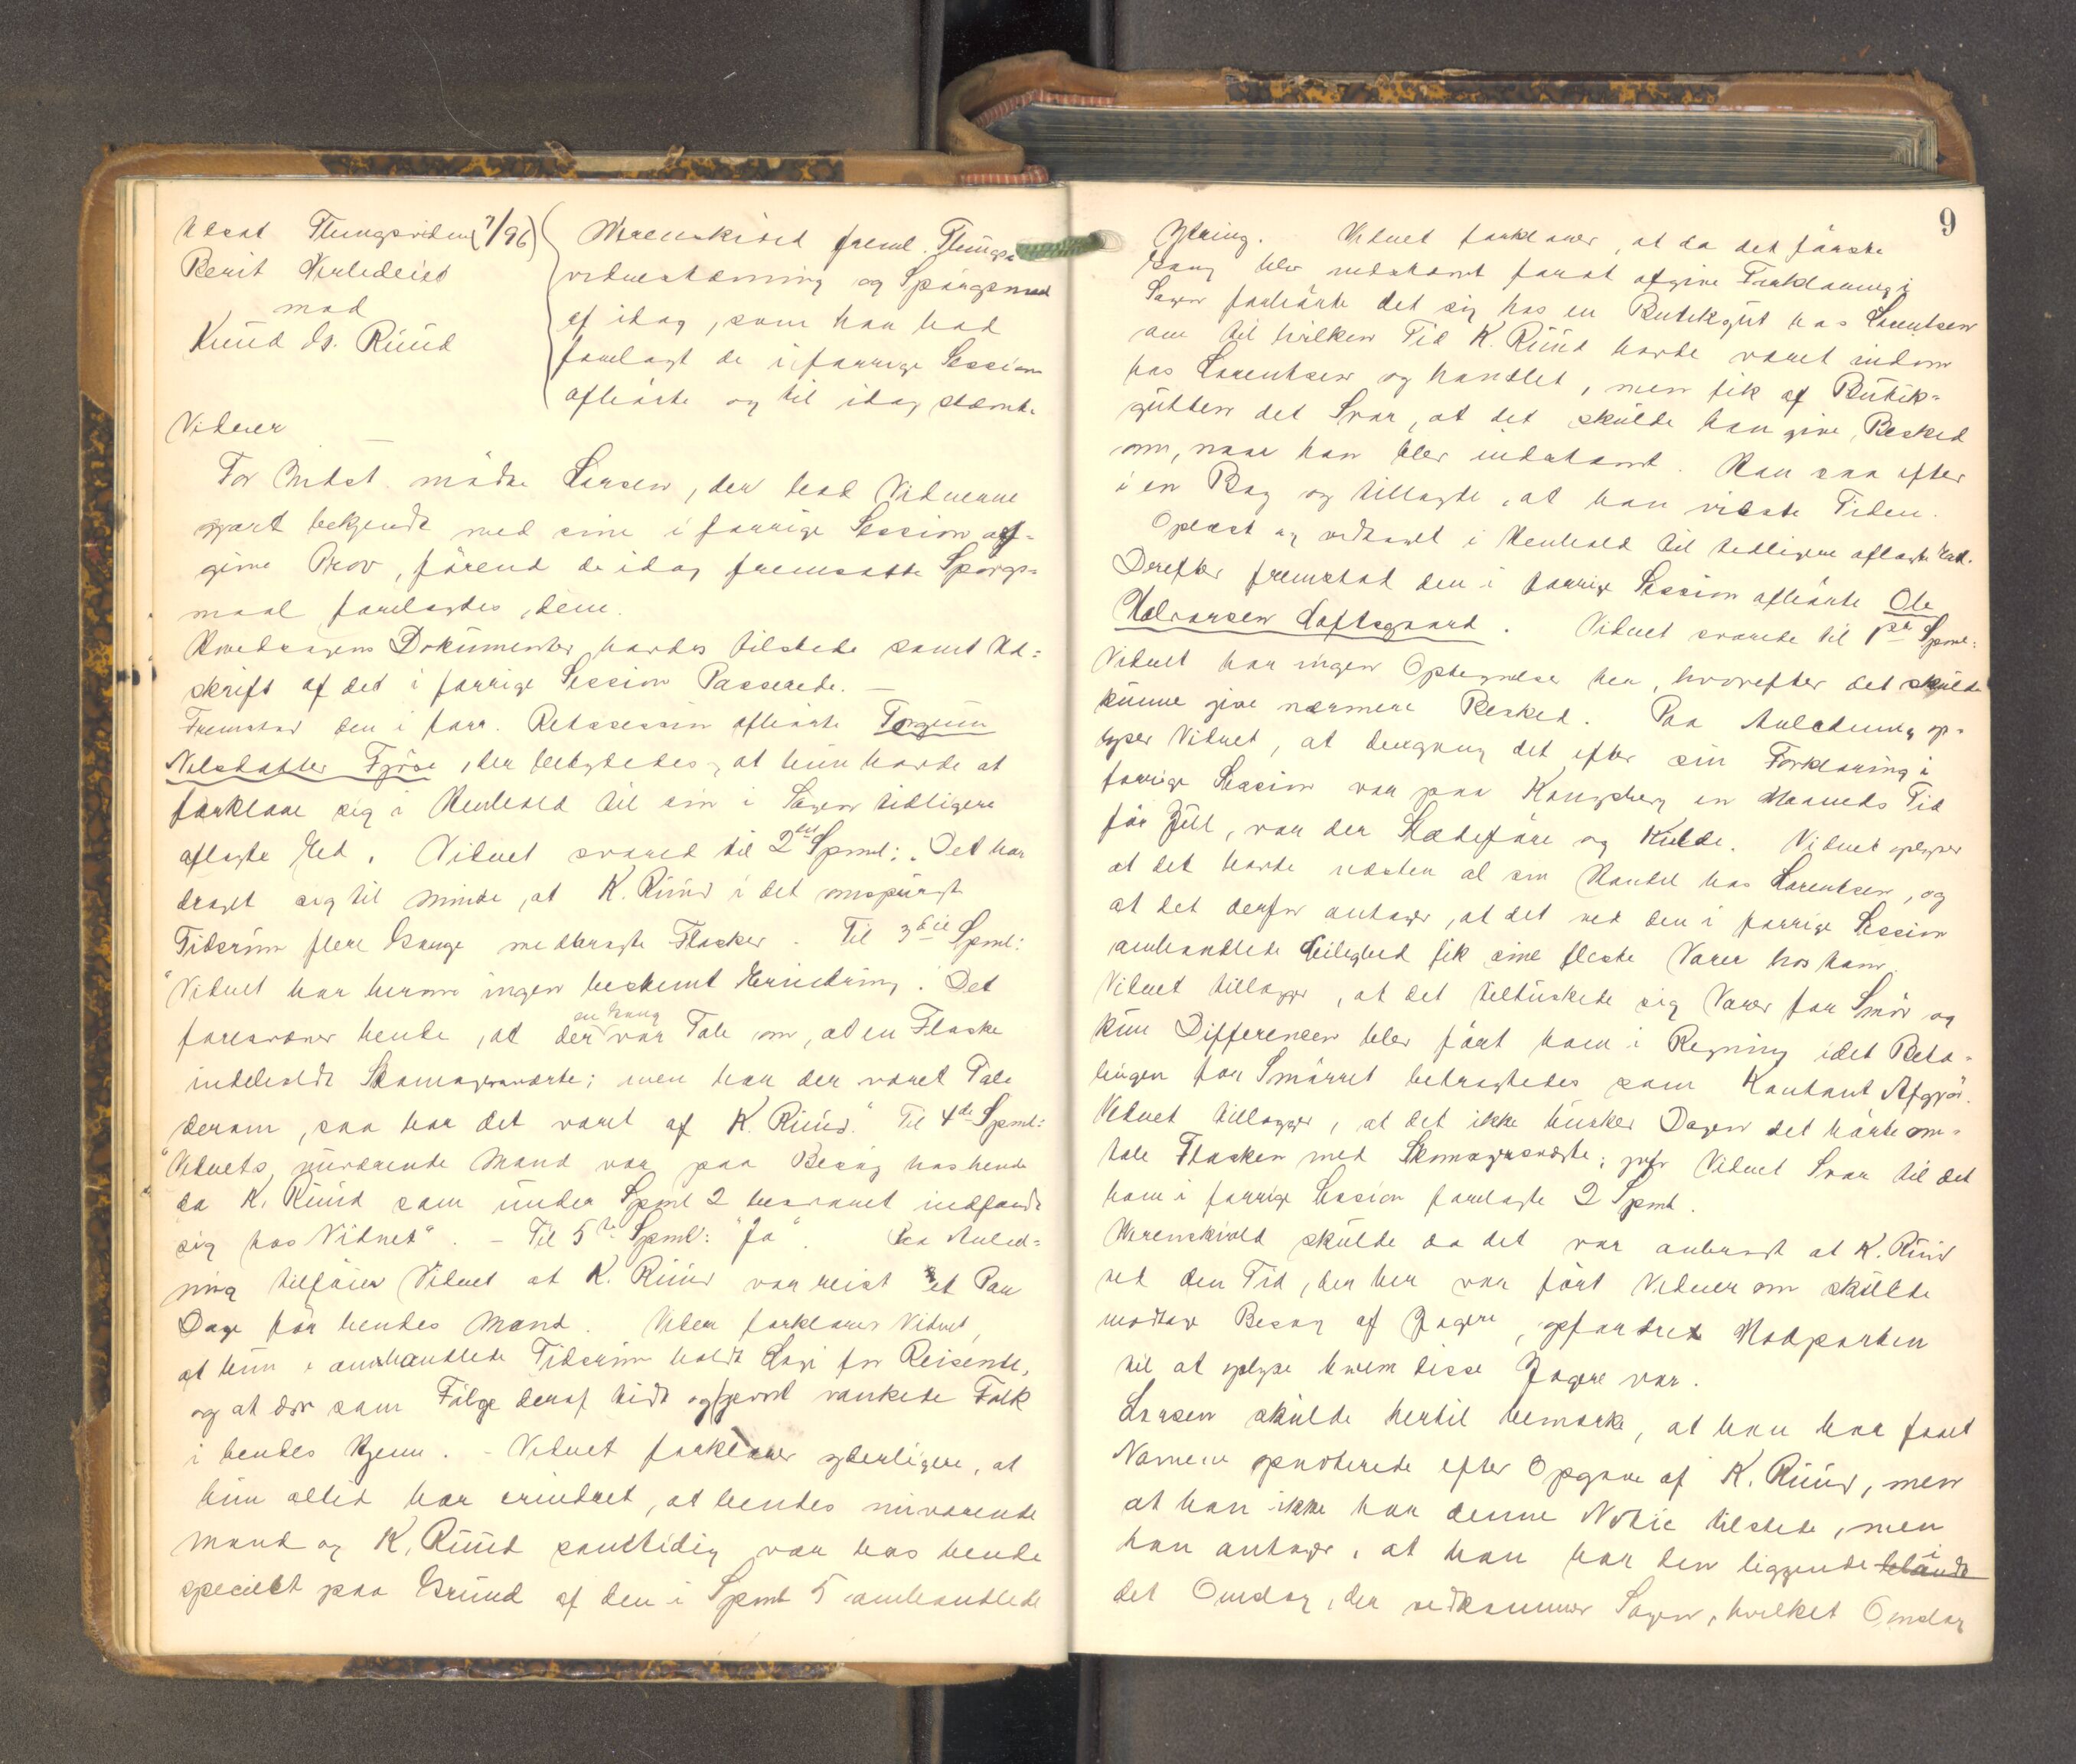 Utsat Thingsvidne (7/96)
Berit Herbdeies
mod
Knud Gs. Ruud
Werenskiold freml. Things-
vidnestævning og Spørgsmaal
af idag, som han lod
forelagt de i forrige Session
afhørte og til idag stævnte
Vidner
For Indst. mødte Larsen, der lod Vidnerne
gjort bekjendt med sine i forrige Session af-
givne Prov, førend de idag fremsatte Spørgs-
maal forelagdes dem.
Hovedsagens Dokumenter havdes tilstede samt Ud-
skrift af det i forrige Session Passerede. —
Fremstod den i forr. Retssession afhørte Torgun
Nilsdatter Fjøse, der betydedes, at hun havde at
forklare sig i Henhold til sin i Sagen tidligere
aflagte Ed. Vidnet svared til 2det Spml: "Det har
draget sig til Minde, at K. Ruud i det omspurgte
Tidsrum flere Gange medbragte Flasker. Til 3die Spml:
"Vidnet har herom ingen bestemt Erindring. Det
foresvæver hende, at der en Gang var Tale om, at en Flaske
indeholdt Skomagersværte; men har der været Tale
derom, saa har det været af K. Ruud." Til 4de Spml:
"Vidnets nuværende Mand var paa Besøg hos hende
da K. Ruud som under Spml 2 besvaret indfandt
sig hos Vidnet". – Til 5te Spml: "Ja". Paa Anled-
ning tilføier Vidnet at K. Ruud var reist et Par
Dage før hendes Mand. Videre forklarer Vidnet,
at hun i omhandlede Tidsrum holdt Logi for Reisende,
og at der som Følge deraf tidt og jevnt vankede Folk
i hendes Hjem. – Vidnet forklarer yderligere, at
hun altid har erindret, at hendes nuværende
Mand og K. Ruud samtidig var hos hende
specielt paa Grund af den i Spml 5 omhandlede
9
Ytring. Vidnet forklarer, at da det første
Gang blev indstævnt forat afgive Forklaring i
Sagen forhørte det sig hos en Butikgut hos Lorentsen
om til hvilken Tid K. Ruud havde været indom
hos Lorentsen og handlet, men fik af Butik-
gutten det Svar, at det skulde han give Besked
om, naar han blev indstævnt. Han saa efter
i en Bog og tillagde, at han vidste Tiden.
Oplæst og vedtaget i Henhold til tidligere aflagte Ed.
Derefter fremstod den i forrige Session afhørte Ole
Halvorsen Loftsgaard. Vidnet svarede til 1ste Spml:
Vidnet har ingen Optegnelse her, hvorefter det skulde
kunne give nærmere Besked. Paa Anledning op-
lyser Vidnet, at dengang det efter sin Forklaring i
forrige Session var paa Kongsberg en Maaneds Tid
før Jul, var der Slædeføre og Kulde. Vidnet oplyser
at det havde næsten al sin Handel hos Lorentsen, og
at det derfor antager, at det ved den i forrige Session
omhandlede Leilighed fik sine fleste Varer hos ham.
Vidnet tillægger, at det tiltuskede sig Varer for Smør og
kun Differencen blev ført ham i Regning idet Beta-
lingen for Smørret betragtedes som Kontant Afgjør.
Vidnet tillægger, at det ikke husker Dagen det hørte om-
tale Flasken med Skomagersværte; jvfr Vidnet Svar til det
ham i forrige Session forelagte 2 Spml.
Werenskiold skulde da det var anbragt at K. Ruud
ved den Tid, der her var ført Vidner om skulde
modtage Besøg af Jægere, opfordret Modparten
til at oplyse hvem disse Jægere var.
Larsen skulde hertil bemærke, at han har faaet
Navnene opnoterede efter Opgave af K. Ruud, men
at han ikke har denne Notic tilstede, men
han antager, at han har den liggende blandt i
det Omslag, der vedkommer Sagen, hvilket Omslag